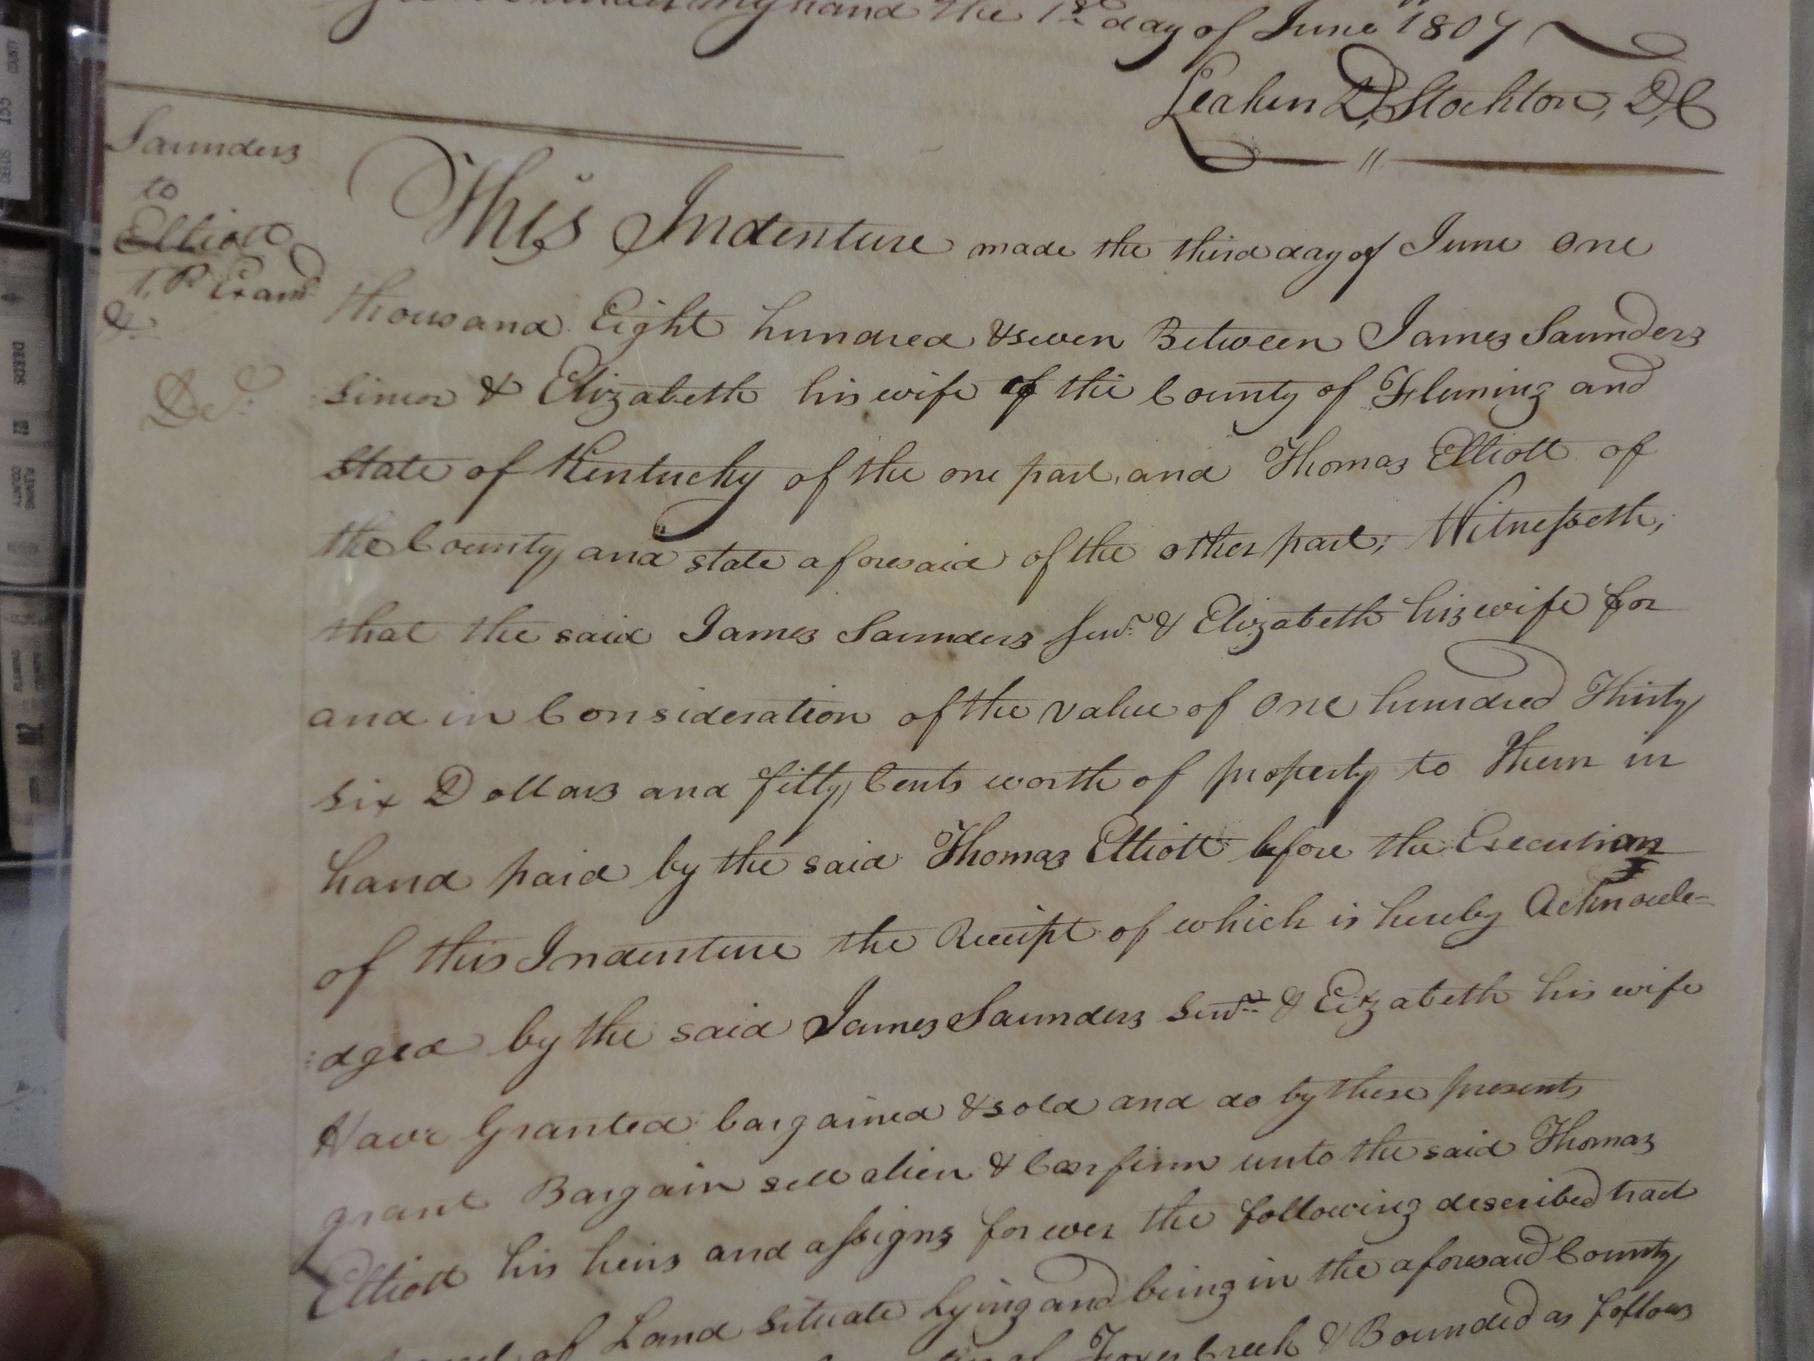 under my hand the 1st day of June 1807
Leaken D, Stockton, D,C
Saunders
to
Elliott
Exam.d
&
Dd.
This Indenture made the third day of June One
thousand Eight hundred & seven Between James Saunders
sinior & Elizabeth his wife of the County of Fleming and
State of Kentucky of the one part, and Thomas Elliott of
the County and state aforesaid of the other part; Witnesseth,
that the said James Saunders Senr. & Elizabeth his wife for
and in Consideration of the value of One hundred Thirty
six Dollars and fifty Cents worth of property to them in
hand paid by the said Thomas Elliott before the Execution
of this Indenture the Receipt of which is hereby Acknowle=
:dged by the said James Saunders Senr. & Elizabeth his wife
Have Granted bargained & sold and do by these presents
grant Bargain sell alien & Confirm unto the said Thomas
Elliott his heirs and assigns forever the following described tract
of Land situate Lying and being in the aforesaid County
Foxes Creek & Bounded as follows
DEEDS
FLEMING
COUNTY